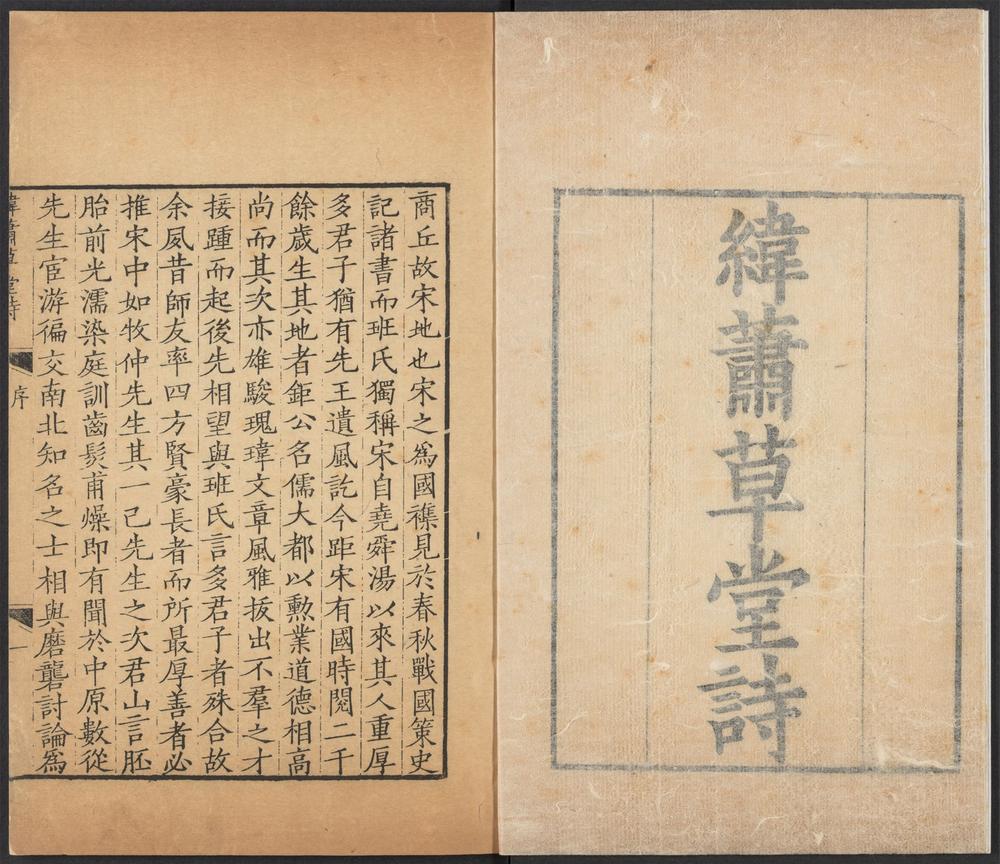 緯蕭草堂詩
商丘故宋地也宋之爲國襍見於春秋戰國策史
記諸書而班氏獨稱宋自堯舜湯以來其人重厚
多君子猶有先王遺風訖今距宋有國時閱二千
餘歲生其地者鉅公名儒大都以勲業道德相高
尚而其次亦雄駿瑰瑋文章風雅拔出不羣之才
接踵而起後先相望與班氏言多君子者殊合故
余夙昔師友率四方賢豪長者而所最厚善者必
推宋中如牧仲先生其一已先生之次君山言胚
胎前光濡染庭訓齒髮甫燥即有聞於中原數從
先生宦游徧交南北知名之士相與磨礲討論爲
緯蕭草堂詩
序
一